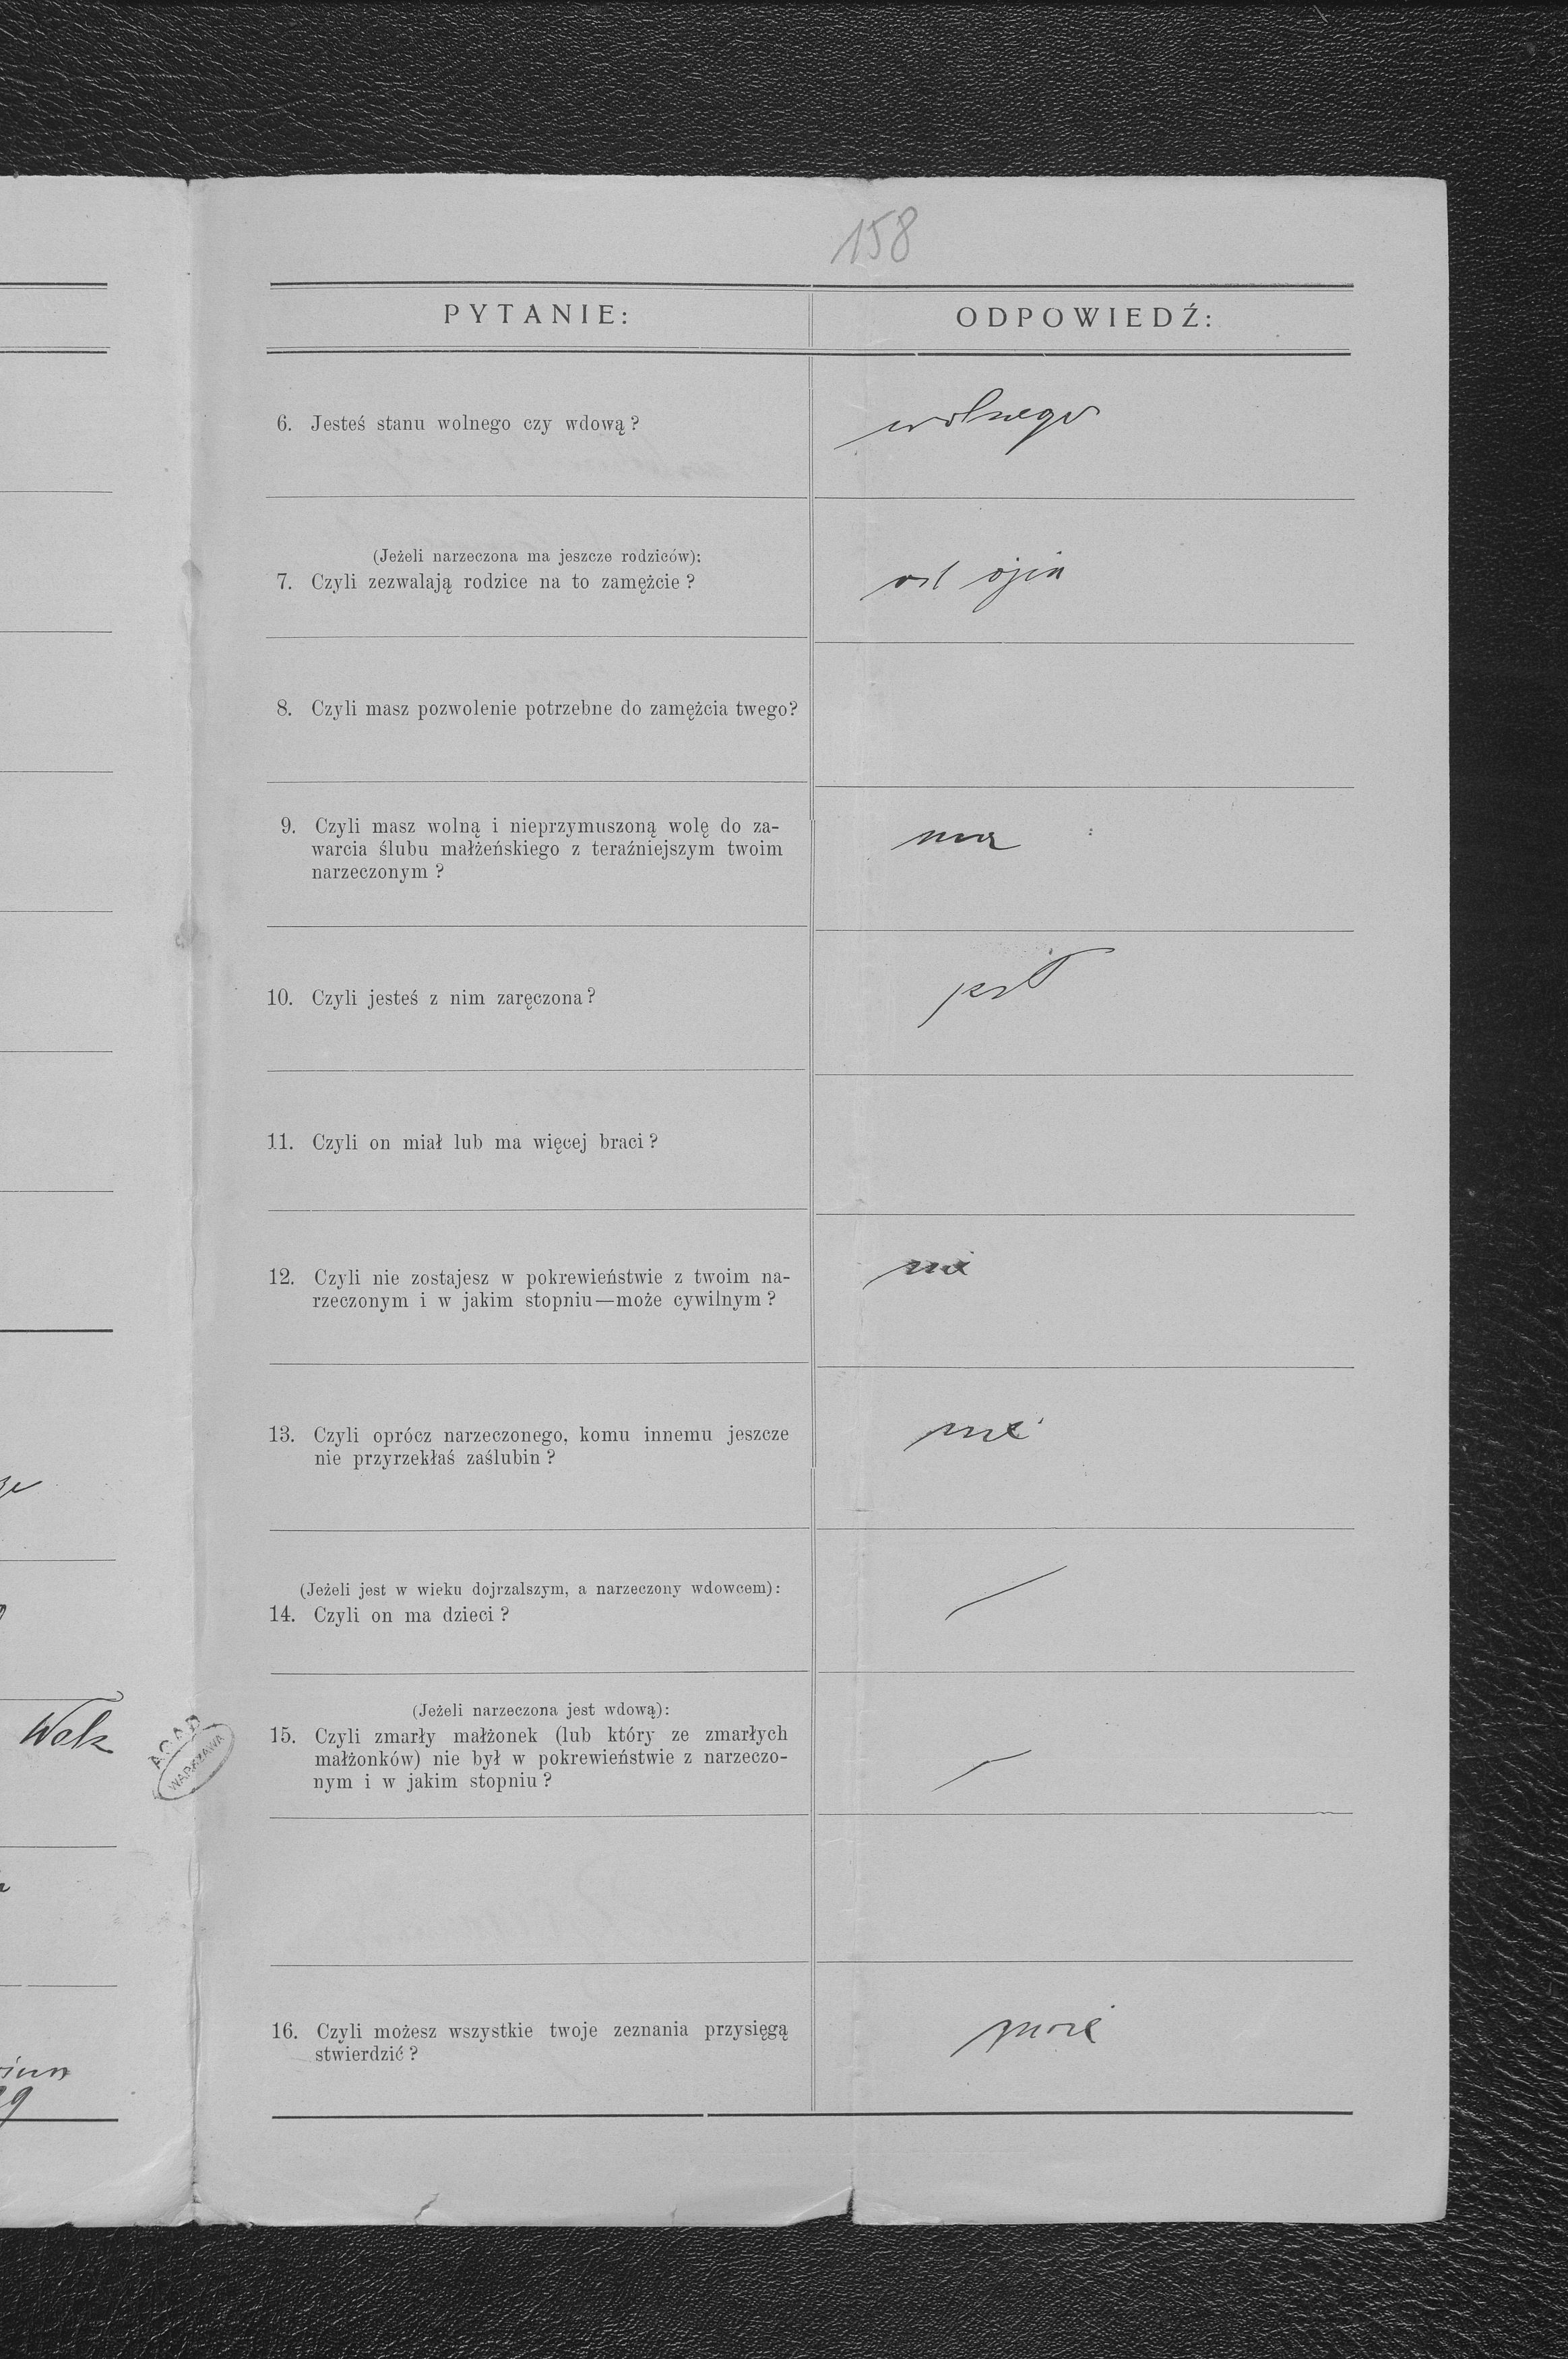 158
PYTANIE:
ODPOWIEDŹ:
6. Jesteś stanu wolnego czy wdową?
wolnego
(Jeżeli narzeczona ma jeszcze rodziców):
7. Czyli zezwalają rodzice na to zamężcie?
od ojca
8. Czyli masz pozwolenie potrzebne do zamężcia twego?
9. Czyli masz wolną i nieprzymuszoną wolę do za-
warcia ślubu małżeńskiego z teraźniejszym twoim
narzeczonym?
ma
10. Czyli jesteś z nim zaręczona?
jest
11. Czyli on miał lub ma więcej braci?
12. Czyli nie zostajesz w pokrewieństwie z twoim na-
rzeczonym i w jakim stopniu—może cywilnym?
nie
13. Czyli oprócz narzeczonego, komu innemu jeszcze
nie przyrzekłaś zaślubin?
nie
(Jeżeli jest w wieku dojrzalszym, a narzeczony wdowcem):
14. Czyli on ma dzieci?
(Jeżeli narzeczona jest wdową):
15. Czyli zmarły małżonek (lub który ze zmarłych
małżonków) nie był w pokrewieństwie z narzeczo-
nym i w jakim stopniu?
16. Czyli możesz wszystkie twoje zeznania przysięgą
stwierdzić?
może
AGAD
WARSZAWA